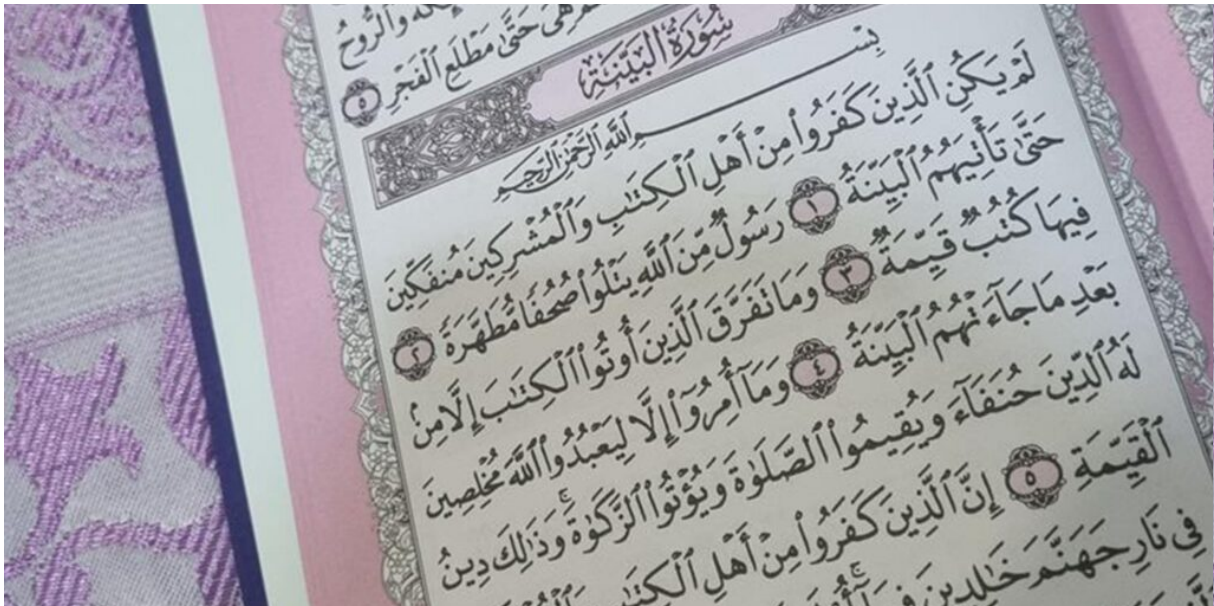 وَٱلرُّوحُ
هِىَ حَتَّىٰ مَطْلَعِ ٱلْفَجْرِ ٥
سُورَةُ البَيِّنَةِ
بِسْمِ ٱللَّهِ ٱلرَّحْمَٰنِ ٱلرَّحِيمِ
لَمْ يَكُنِ ٱلَّذِينَ كَفَرُوا۟ مِنْ أَهْلِ ٱلْكِتَٰبِ وَٱلْمُشْرِكِينَ مُنفَكِّينَ
حَتَّىٰ تَأْتِيَهُمُ ٱلْبَيِّنَةُ ١ رَسُولٌ مِّنَ ٱللَّهِ يَتْلُوا۟ صُحُفًا مُّطَهَّرَةً ٢
فِيهَا كُتُبٌ قَيِّمَةٌ ٣ وَمَا تَفَرَّقَ ٱلَّذِينَ أُوتُوا۟ ٱلْكِتَٰبَ إِلَّا مِنۢ
بَعْدِ مَا جَآءَتْهُمُ ٱلْبَيِّنَةُ ٤ وَمَآ أُمِرُوٓا۟ إِلَّا لِيَعْبُدُوا۟ ٱللَّهَ مُخْلِصِينَ
لَهُ ٱلدِّينَ حُنَفَآءَ وَيُقِيمُوا۟ ٱلصَّلَوٰةَ وَيُؤْتُوا۟ ٱلزَّكَوٰةَ ۚ وَذَٰلِكَ دِينُ
ٱلْقَيِّمَةِ ٥ إِنَّ ٱلَّذِينَ كَفَرُوا۟ مِنْ أَهْلِ ٱلْكِتَٰبِ
فِى نَارِ جَهَنَّمَ خَٰلِدِينَ